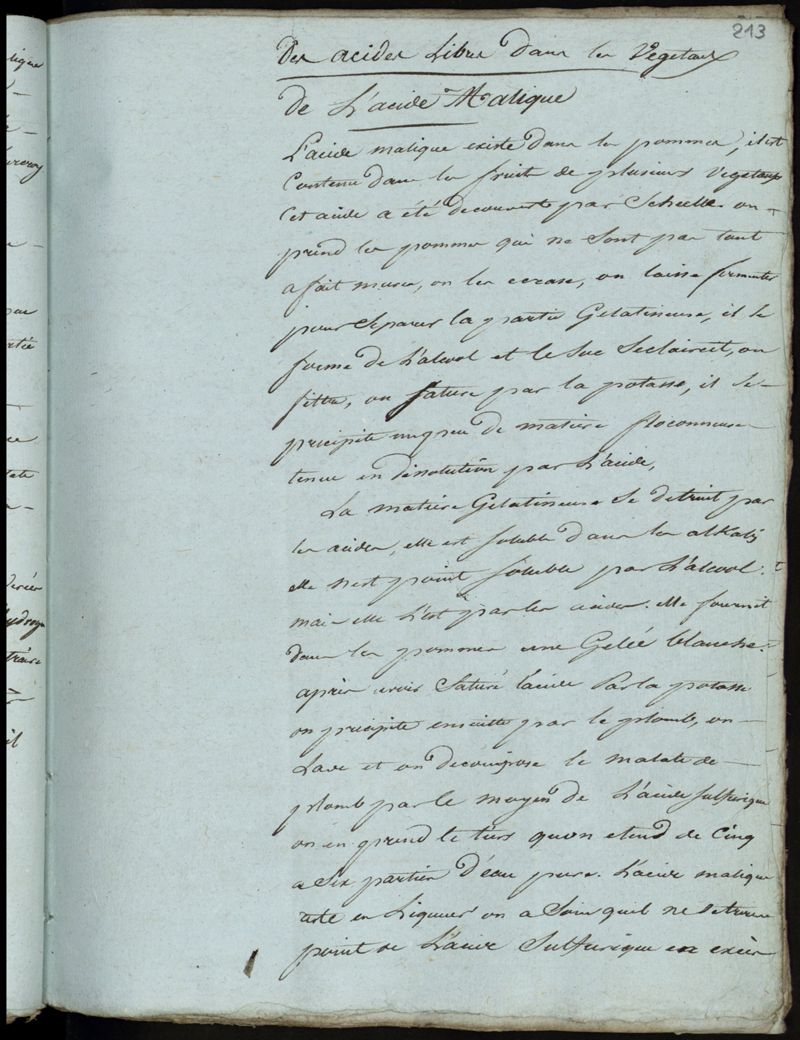 213
Des acides Libres Dans les Vegetaux
De L'acide Malique
L'acide malique existe Dans les pommes, il est
Contenu Dans les fruits de plusieurs Vegetaux
Cet acide a été decouvert par Scheelle on
prend les pommes qui ne Sont pas tout
a fait mures, on les ecrase, on laisse fermenter
pour Separer la partie Gelatineuse, il se
forme de L'alcool et le Suc Seclaircit, on
filtre, on Sature par la potasse, il se
precipite un peu de matiere floconneuse
tenue en Dissolution par L'acide,
La matiere Gelatineuse Se detruit par
les acides, elle est Soluble Dans les alkalis
elle nest point Soluble par L'alcool.
mais elle L'est par les acides. elle fournit
Dans les pommes une Gelée blanche.
après avoir Saturé l'acide Par la potasse
on precipite ensuitte par le plomb, on
Lave et on Decompose le malate de
plomb par le moyen de L'acide Sulfurique
on en prend le tiers quon etend de Cinq
a Six parties D'eau pure. L'acide malique
reste en Liqueur on a Soin quil ne se trouve
point de L'acide Sulfurique en excès
lique
ydrog
il